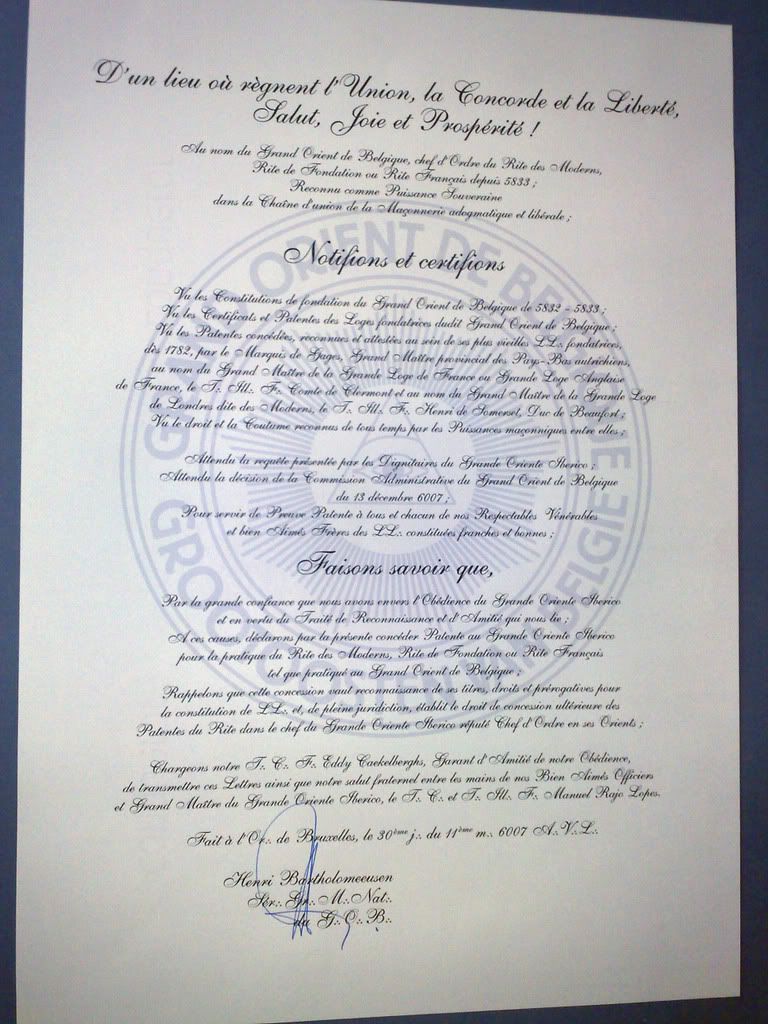 D'un lieu où règnent l'Union, la Concorde et la Liberté,
Salut, Joie et Prospérité !
Au nom du Grand Orient de Belgique, chef d'Ordre du Rite des Moderns,
Rite de Fondation ou Rite Français depuis 5833 ;
Reconnu comme Puissance Souveraine
dans la Chaîne d'union de la Maçonnerie adogmatique et libérale ;
Notifions et certifions
Vu les Constitutions de fondation du Grand Orient de Belgique de 5832 - 5833 ;
Vu les Certificats et Patentes des Loges fondatrices dudit Grand Orient de Belgique ;
Vu les Patentes concédées, reconnues et attestées au sein de ses plus vieilles LL∴ fondatrices,
dès 1782, par le Marquis de Gages, Grand Maître provincial des Pays-Bas autrichiens,
au nom du Grand Maître de la Grande Loge de France ou Grande Loge Anglaise
de France, le T∴ Ill∴ F∴ Comte de Clermont et au nom du Grand Maître de la Grande Loge
de Londres dite des Moderns, le T∴ Ill∴ F∴ Henri de Somerset, Duc de Beaufort ;
Vu le droit et la Coutume reconnus de tous temps par les Puissances maçonniques entre elles ;
Attendu la requête présentée par les Dignitaires du Grande Oriente Iberico ;
Attendu la décision de la Commission Administrative du Grand Orient de Belgique
du 13 décembre 6007 ;
Pour servir de Preuve Patente à tous et chacun de nos Respectables Vénérables
et bien Aimés Frères des LL∴ constituées franches et bonnes ;
Faisons savoir que,
Par la grande confiance que nous avons envers l'Obédience du Grande Oriente Iberico
et en vertu du Traité de Reconnaissance et d'Amitié qui nous lie ;
A ces causes, déclarons par la présente concéder Patente au Grande Oriente Iberico
pour la pratique du Rite des Moderns, Rite de Fondation ou Rite Français
tel que pratiqué au Grand Orient de Belgique ;
Rappelons que cette concession vaut reconnaissance de ses titres, droits et prérogatives pour
la constitution de LL∴ et, de pleine juridiction, établit le droit de concession ultérieure des
Patentes du Rite dans le chef du Grande Oriente Iberico réputé Chef d'Ordre en ses Orients ;
Chargeons notre T∴ C∴ F∴ Eddy Caekelberghs, Garant d'Amitié de notre Obédience,
de transmettre ces Lettres ainsi que notre salut fraternel entre les mains de nos Bien Aimés Officiers
et Grand Maître du Grande Oriente Iberico, le T∴ C∴ et T∴ Ill∴ F∴ Manuel Rajo Lopes.
Fait à l'Or∴ de Bruxelles, le 30ème j∴ du 11ème m∴ 6007 A∴V∴L∴
Henri Bartholomeeusen
Sér∴ Gr∴ M∴ Nat∴
du G∴O∴B∴